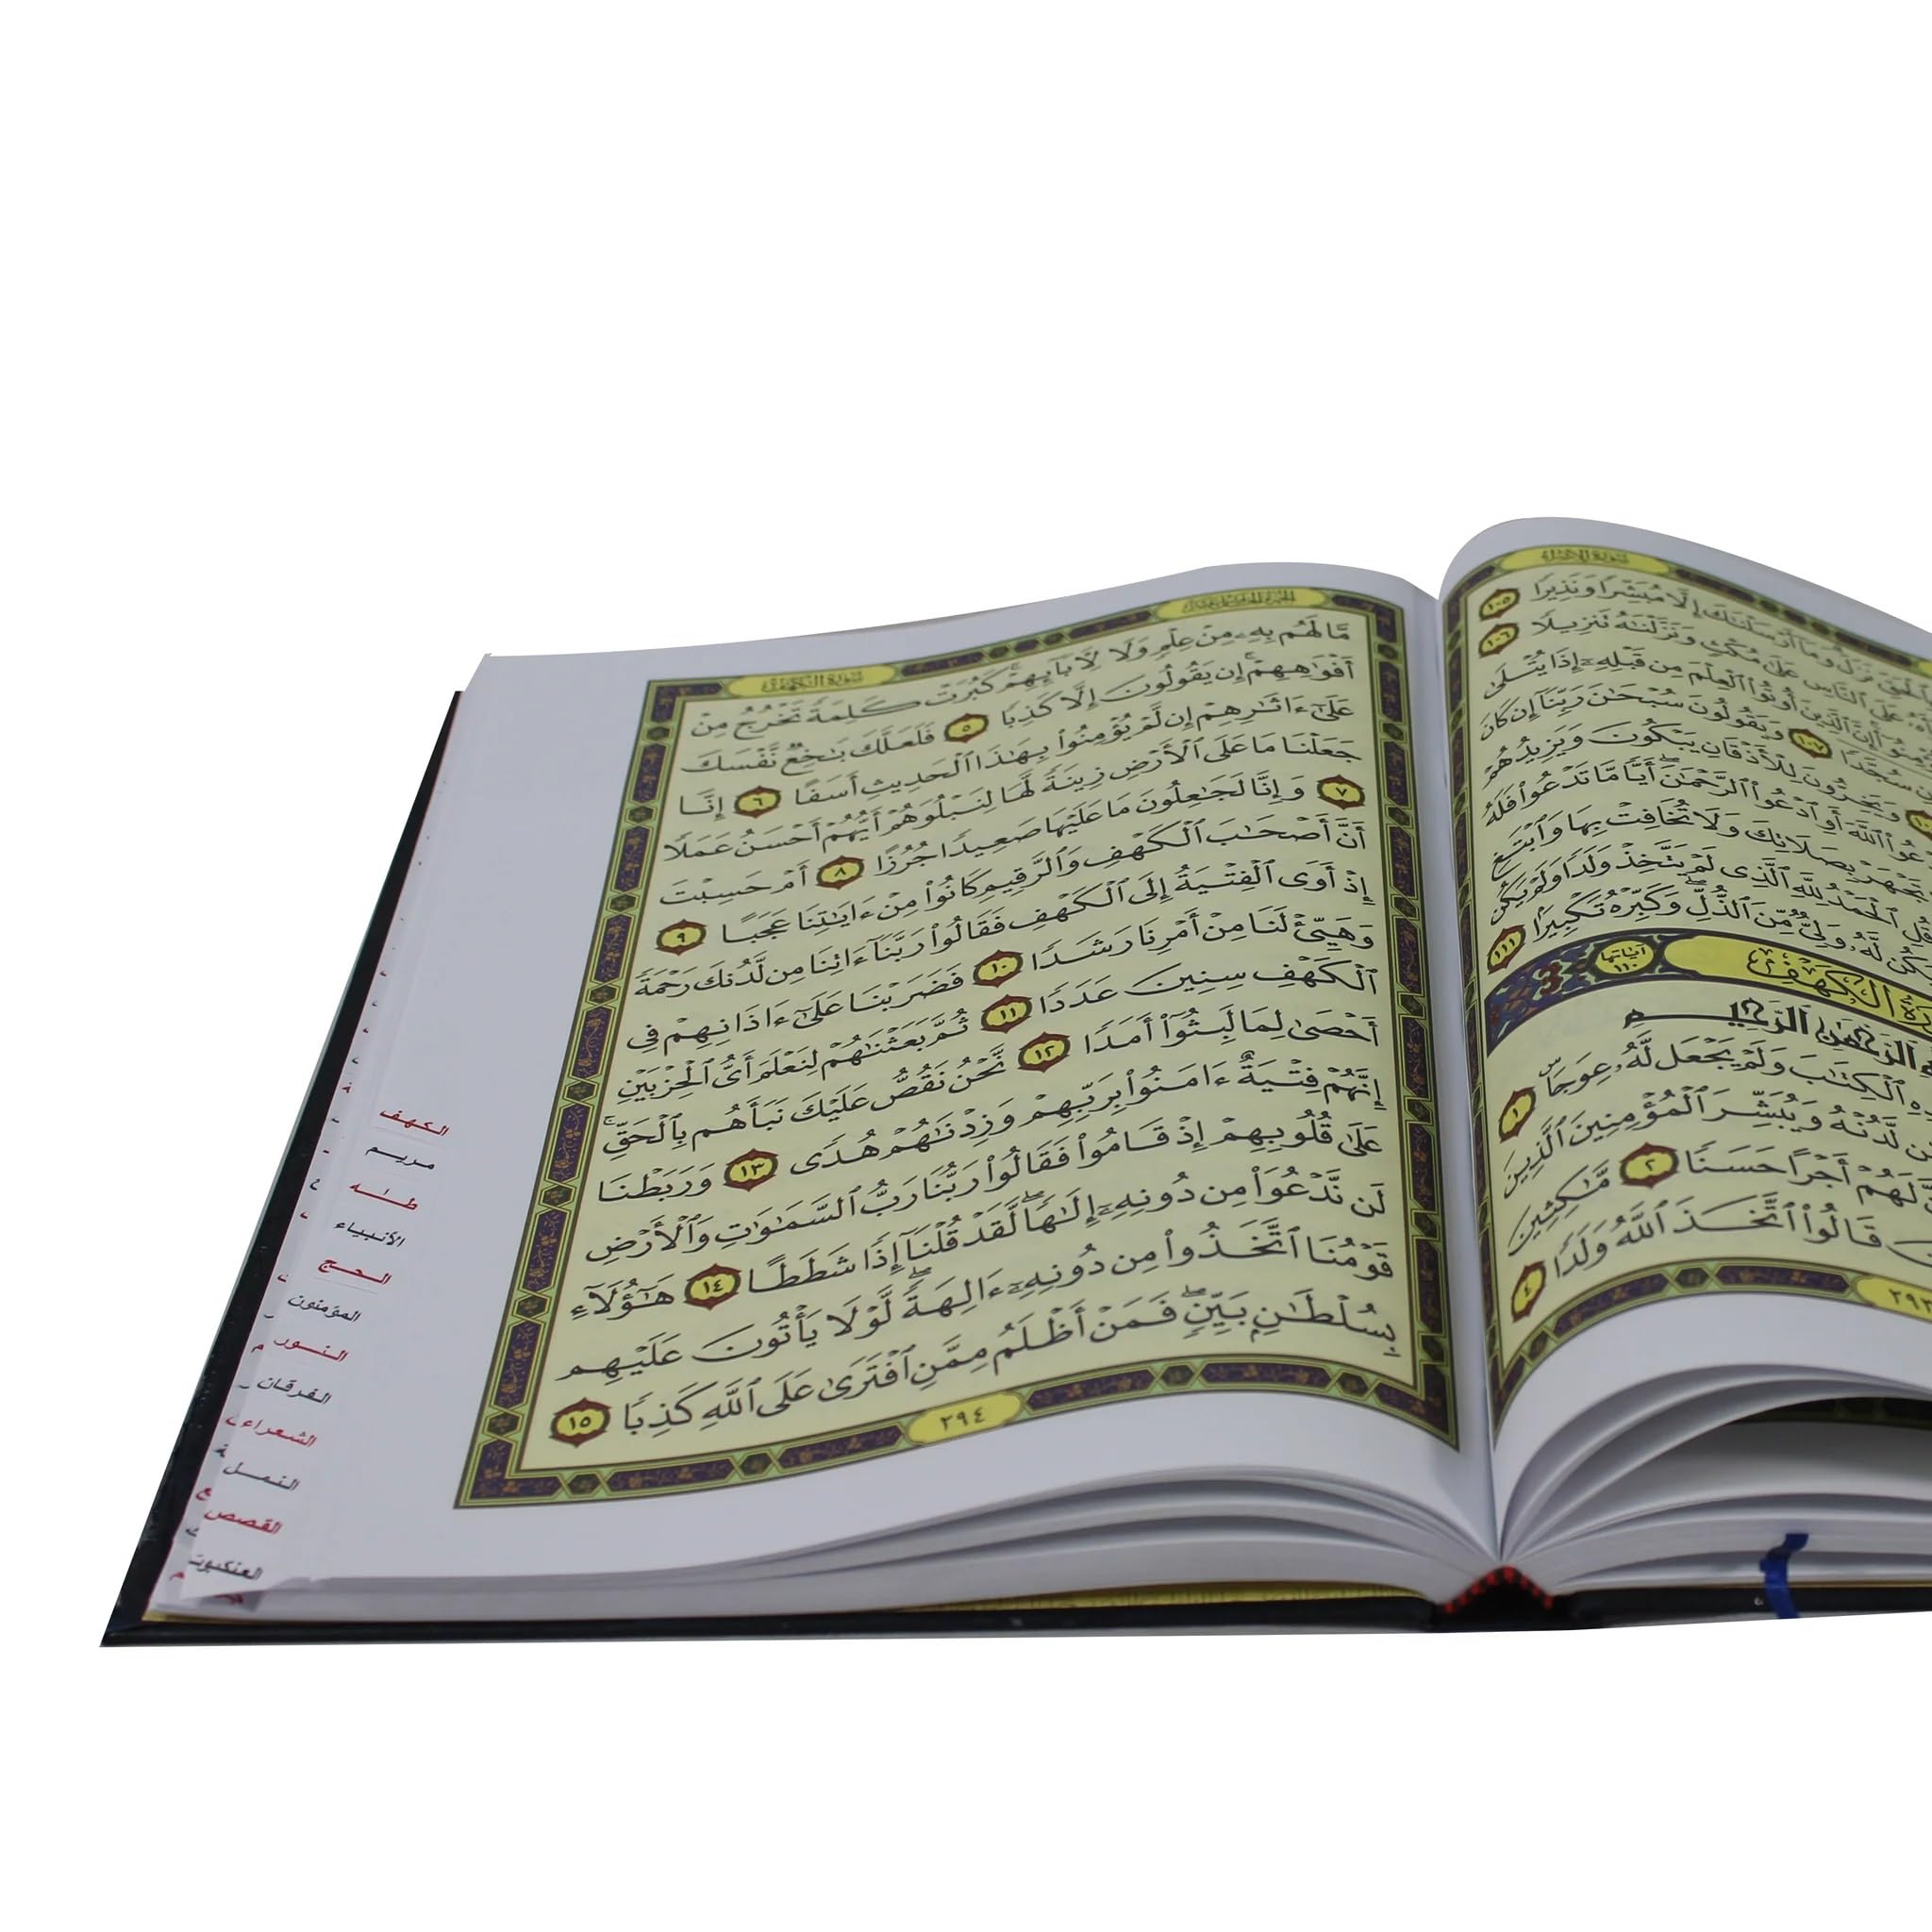 سورة الإسراء
نَزَلَ وَمَآ أَرۡسَلۡنَٰكَ إِلَّا مُبَشِّرٗا وَنَذِيرٗا ١٠٥
عَلَى ٱلنَّاسِ عَلَىٰ مُكۡثٖ وَنَزَّلۡنَٰهُ تَنزِيلٗا ١٠٦
إِنَّ ٱلَّذِينَ أُوتُواْ ٱلۡعِلۡمَ مِن قَبۡلِهِۦٓ إِذَا يُتۡلَىٰ
سُجَّدٗا ١٠٧ وَيَقُولُونَ سُبۡحَٰنَ رَبِّنَآ إِن كَانَ
وَيَخِرُّونَ لِلۡأَذۡقَانِ يَبۡكُونَ وَيَزِيدُهُمۡ
ٱللَّهَ أَوِ ٱدۡعُواْ ٱلرَّحۡمَٰنَۖ أَيّٗا مَّا تَدۡعُواْ فَلَهُ
بِصَلَاتِكَ وَلَا تُخَافِتۡ بِهَا وَٱبۡتَغِ
ٱلۡحَمۡدُ لِلَّهِ ٱلَّذِي لَمۡ يَتَّخِذۡ وَلَدٗا وَلَمۡ يَكُن
لَّهُۥ وَلِيّٞ مِّنَ ٱلذُّلِّۖ وَكَبِّرۡهُ تَكۡبِيرَۢا ١١١
ٱلكَهۡف آياتها ١١٠
ٱلرَّحۡمَٰنِ ٱلرَّحِيمِ
ٱلۡكِتَٰبَ وَلَمۡ يَجۡعَل لَّهُۥ عِوَجَاۜ ١
لَّدُنۡهُ وَيُبَشِّرَ ٱلۡمُؤۡمِنِينَ ٱلَّذِينَ
لَهُمۡ أَجۡرًا حَسَنٗا ٢ مَّٰكِثِينَ
قَالُواْ ٱتَّخَذَ ٱللَّهُ وَلَدٗا ٤
٢٩٣
الجزء الخامس عشر سورة الكهف
مَّا لَهُم بِهِۦ مِنۡ عِلۡمٖ وَلَا لِأٓبَآئِهِمۡۚ كَبُرَتۡ كَلِمَةٗ تَخۡرُجُ مِنۡ
أَفۡوَٰهِهِمۡۚ إِن يَقُولُونَ إِلَّا كَذِبٗا ٥ فَلَعَلَّكَ بَٰخِعٞ نَّفۡسَكَ
عَلَىٰٓ ءَاثَٰرِهِمۡ إِن لَّمۡ يُؤۡمِنُواْ بِهَٰذَا ٱلۡحَدِيثِ أَسَفًا ٦ إِنَّا
جَعَلۡنَا مَا عَلَى ٱلۡأَرۡضِ زِينَةٗ لَّهَا لِنَبۡلُوَهُمۡ أَيُّهُمۡ أَحۡسَنُ عَمَلٗا
٧ وَإِنَّا لَجَٰعِلُونَ مَا عَلَيۡهَا صَعِيدٗا جُرُزًا ٨ أَمۡ حَسِبۡتَ
أَنَّ أَصۡحَٰبَ ٱلۡكَهۡفِ وَٱلرَّقِيمِ كَانُواْ مِنۡ ءَايَٰتِنَا عَجَبًا ٩
إِذۡ أَوَى ٱلۡفِتۡيَةُ إِلَى ٱلۡكَهۡفِ فَقَالُواْ رَبَّنَآ ءَاتِنَا مِن لَّدُنكَ رَحۡمَةٗ
وَهَيِّئۡ لَنَا مِنۡ أَمۡرِنَا رَشَدٗا ١٠ فَضَرَبۡنَا عَلَىٰٓ ءَاذَانِهِمۡ فِي
ٱلۡكَهۡفِ سِنِينَ عَدَدٗا ١١ ثُمَّ بَعَثۡنَٰهُمۡ لِنَعۡلَمَ أَيُّ ٱلۡحِزۡبَيۡنِ
أَحۡصَىٰ لِمَا لَبِثُوٓاْ أَمَدٗا ١٢ نَّحۡنُ نَقُصُّ عَلَيۡكَ نَبَأَهُم بِٱلۡحَقِّۚ
إِنَّهُمۡ فِتۡيَةٌ ءَامَنُواْ بِرَبِّهِمۡ وَزِدۡنَٰهُمۡ هُدٗى ١٣ وَرَبَطۡنَا
عَلَىٰ قُلُوبِهِمۡ إِذۡ قَامُواْ فَقَالُواْ رَبُّنَا رَبُّ ٱلسَّمَٰوَٰتِ وَٱلۡأَرۡضِ
لَن نَّدۡعُوَاْ مِن دُونِهِۦٓ إِلَٰهٗاۖ لَّقَدۡ قُلۡنَآ إِذٗا شَطَطًا ١٤ هَٰٓؤُلَآءِ
قَوۡمُنَا ٱتَّخَذُواْ مِن دُونِهِۦٓ ءَالِهَةٗۖ لَّوۡلَا يَأۡتُونَ عَلَيۡهِم
بِسُلۡطَٰنِۭ بَيِّنٖۖ فَمَنۡ أَظۡلَمُ مِمَّنِ ٱفۡتَرَىٰ عَلَى ٱللَّهِ كَذِبٗا ١٥
٢٩٤
الكهف
مريم
طه
الأنبياء
الحج
المؤمنون
النور
الفرقان
الشعراء
النمل
القصص
العنكبوت